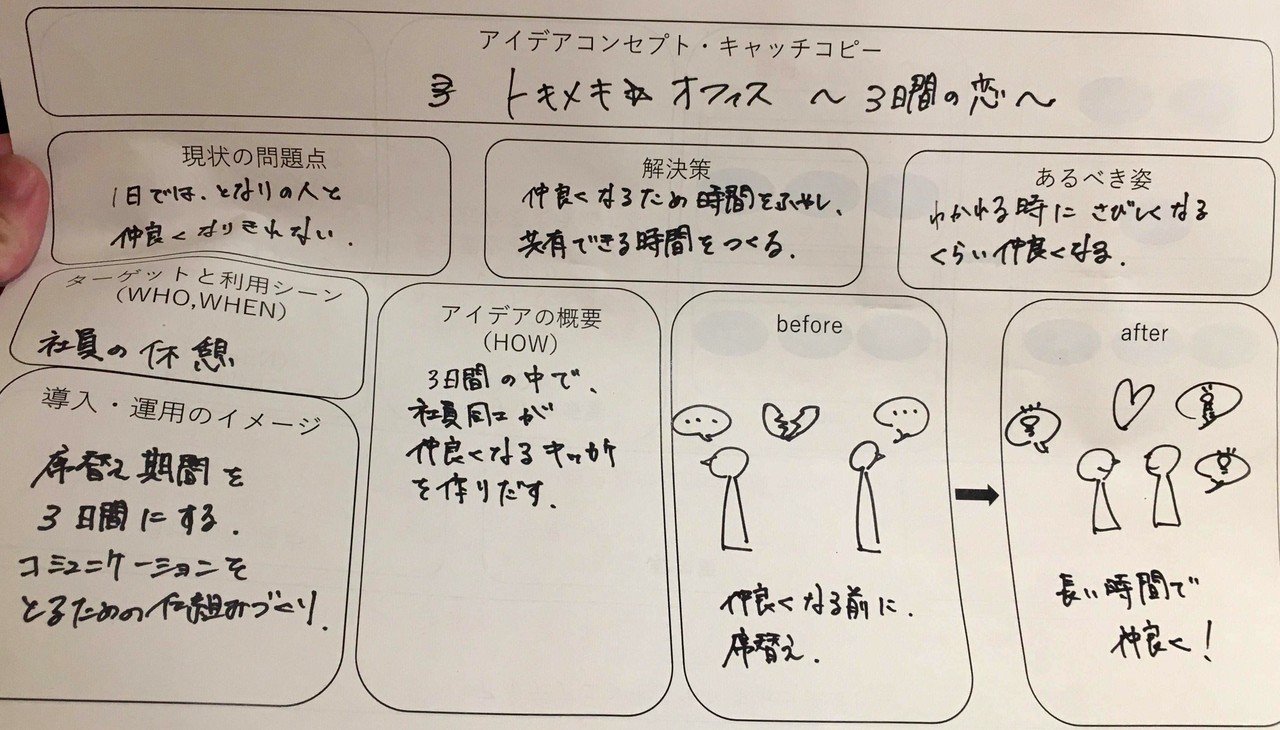 アイデアコンセプト・キャッチコピー
トキメキ☆オフィス 〜3日間の恋〜
現状の問題点
1日では、となりの人と
仲良くなりきれない.
解決策
仲良くなるため時間をふやし、
共有できる時間をつくる.
あるべき姿
わかれる時にさびしくなる
くらい仲良くなる.
ターゲットと利用シーン
(WHO,WHEN)
社員の休憩
導入・運用のイメージ
席替え期間を
3日間にする.
コミュニケーションを
とるための仕組みづくり.
アイデアの概要
(HOW)
3日間の中で、
社員同士が
仲良くなるキッカケ
を作りだす.
before
仲良くなる前に.
席替え.
after
長い時間で
仲良く!